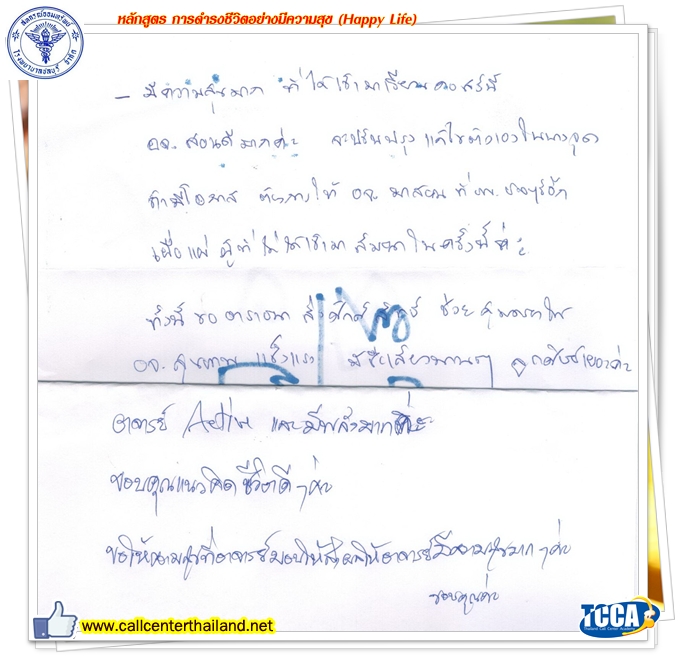 หลักสูตร การดำรงชีวิตอย่างมีความสุข (Happy Life)
สหกรณ์ออมทรัพย์
โรงพยาบาลชลบุรี จำกัด
– มีความสุขมาก ที่ได้เข้ามาเรียนคอร์สนี้
อจ. สอนดีมากค่ะ จะปรับปรุง แก้ไขตัวเองในบางจุด
ถ้ามีโอกาส ต้องการให้ อจ มาสอน ที่ รพ.
เผื่อแผ่ ผู้ที่ไม่ได้เข้ามา สัมมนาในครั้งนี้ค่ะ
ทั้งนี้ ขอ อาราธนา สิ่งศักดิ์สิทธิ์ ช่วย คุ้มครองให้
อจ. สุขภาพ แข็งแรง มีชื่อเสียงนานๆ ลูกศิษย์เยอะค่ะ
อาจารย์ Active และมีพลังมากค่ะ
ขอบคุณแนวคิดชีวิตดีๆค่ะ
ขอให้ความสุขที่อาจารย์มอบให้ส่งผลให้อาจารย์มีความสุขมากๆค่ะ
ขอบคุณค่ะ
www.callcenterthailand.net
TCCA
Thailand Call Center Academy